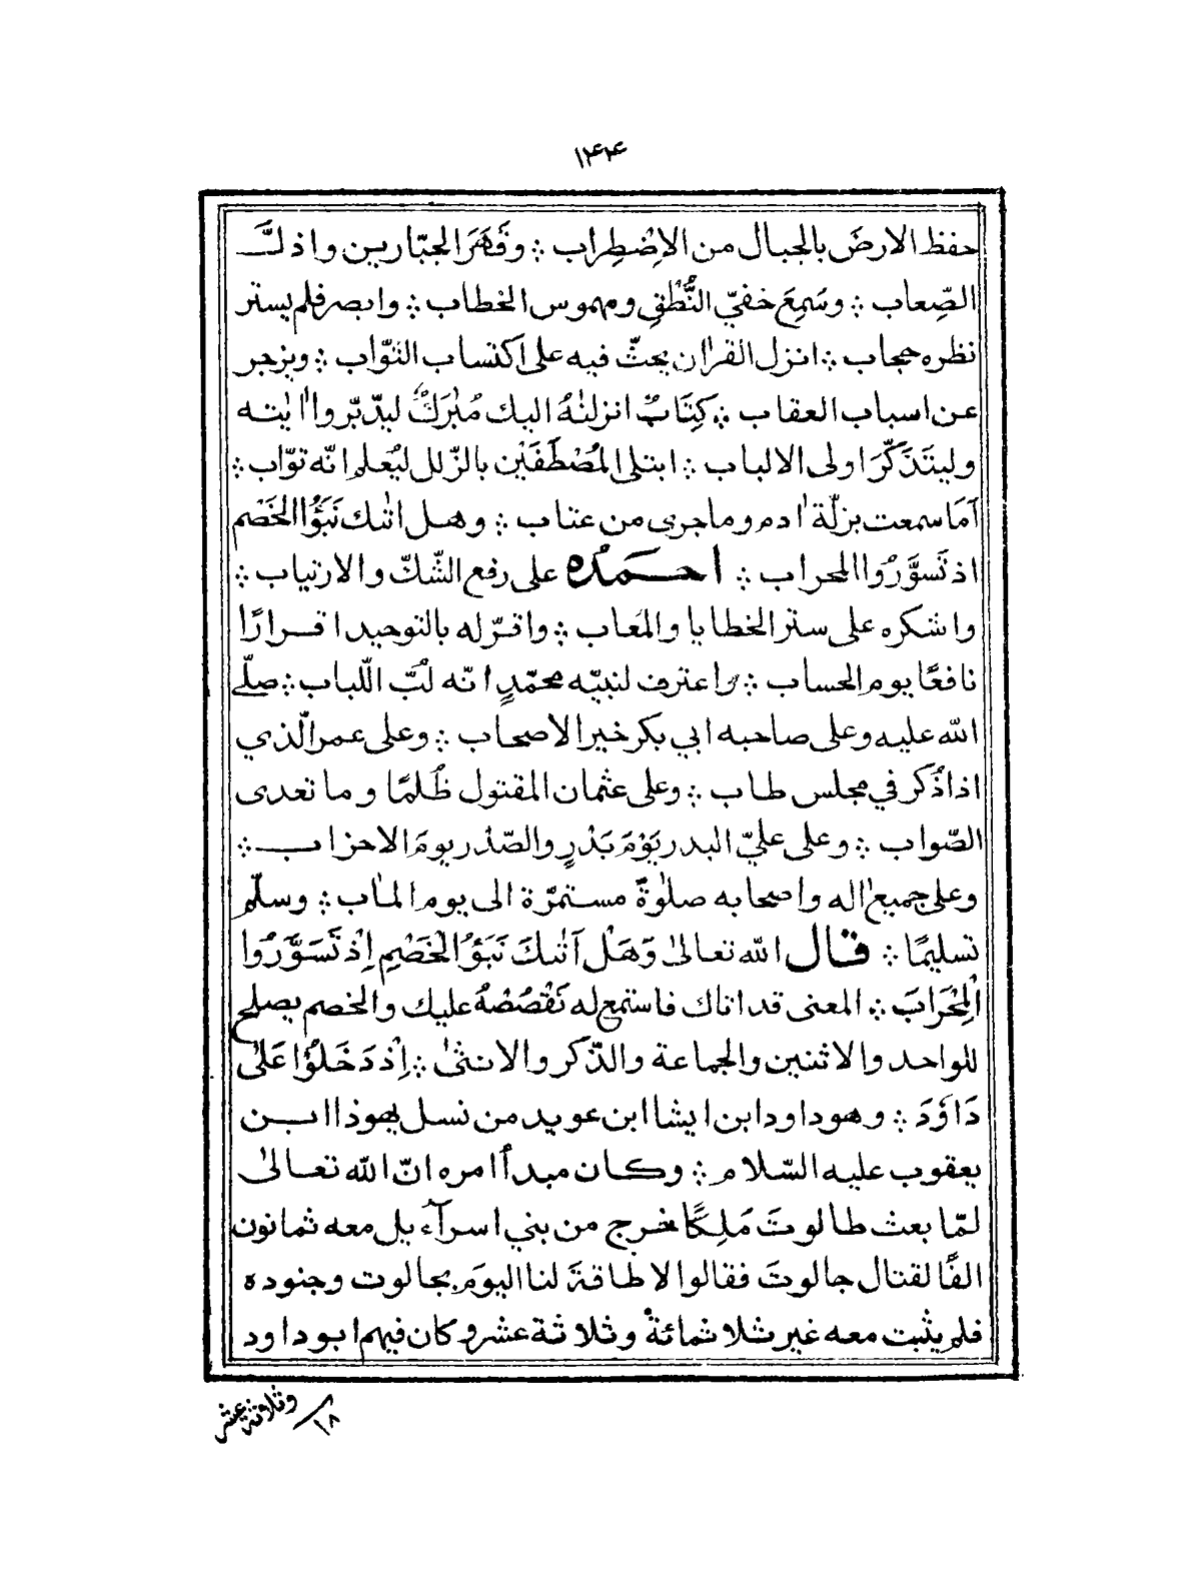 ۱۴۴
حفظ الارضَ بالجبال من الاِضْطِراب ؞ وقَهَرَ الجبّارين واذلَّ
الصِّعاب ؞ وسَمِعَ خفيّ النُّطْقِ ومهموس الخطاب ؞ وابصر فلم يستر
نظره حجاب ؞ انزل القراٰن يحثّ فيه على اكتساب الثوّاب ؞ ويزجر
عن اسباب العقاب ؞ كِتَابٌ انزلنٰهُ اليك مُبٰرَكٌ ليدّبّروا اٰيٰته
وليتَذَكَّرَ اولى الالباب ؞ ابتلى المُصْطَفَيْن بالزّلل ليُعْلم انّه توّاب ؞
اَمَا سمعت بزلّة اٰدم وما جرى من عتاب ؞ وهل اتٰىك نَبَؤُا الخَصْم
اذ تَسوَّرُوا المحراب ؞ احمدُه على رفع الشّكّ والارتياب ؞
واشكره على ستر الخطايا والمَعاب ؞ واقرّ له بالتوحيد اقرارًا
نافعًا يوم الحساب ؞ واعترف لنبيّه محمّدٍ انّه لُبّ اللّباب ؞ صلّى
اللّه عليه وعلى صاحبه ابي بكر خير الاصحاب ؞ وعلى عمر الّذي
اذا ذُكر في مجلس طاب ؞ وعلى عثمان المقتول ظُلمًا وما تعدى
الصّواب ؞ وعلى عليّ البدر يَوْمَ بَدْرٍ والصّدْر يومَ الاحزاب ؞
وعلى جميع اٰله واصحابه صلوٰةً مستمرّة الى يوم الماٰب ؞ وسلّم
تسليمًا ؞ قال اللّه تعالىٰ وَهَلْ اَتٰىكَ نَبَؤُا الْخَصْمِ اِذْ تَسَوَّرُوا
الْمِحْرَابَ ؞ المعنى قد اتاك فاستمع له نَقْصُصْهُ عليك والخصم يصلح
للواحد والاثنين والجماعة والذّكر والانثىٰ ؞ اِذْ دَخَلُوْا عَلٰى
دَاوٗدَ ؞ وهو داود ابن ايشا ابن عويد من نسل يهوذا ابن
يعقوب عليه السّلام ؞ وكان مبدأ امره انّ اللّه تعالىٰ
لمّا بعث طالوتَ مَلِكًا خرج من بني اسرآءيل معه ثمانون
الفًا لقتال جالوتَ فقالوا لا طاقةَ لنا اليوَم بجالوت وجنوده
فلم يثبت معه غير ثلاثمائة وثلاثة عشر وكان فيهم ابو داود
وثلاثة عشر
۱۸